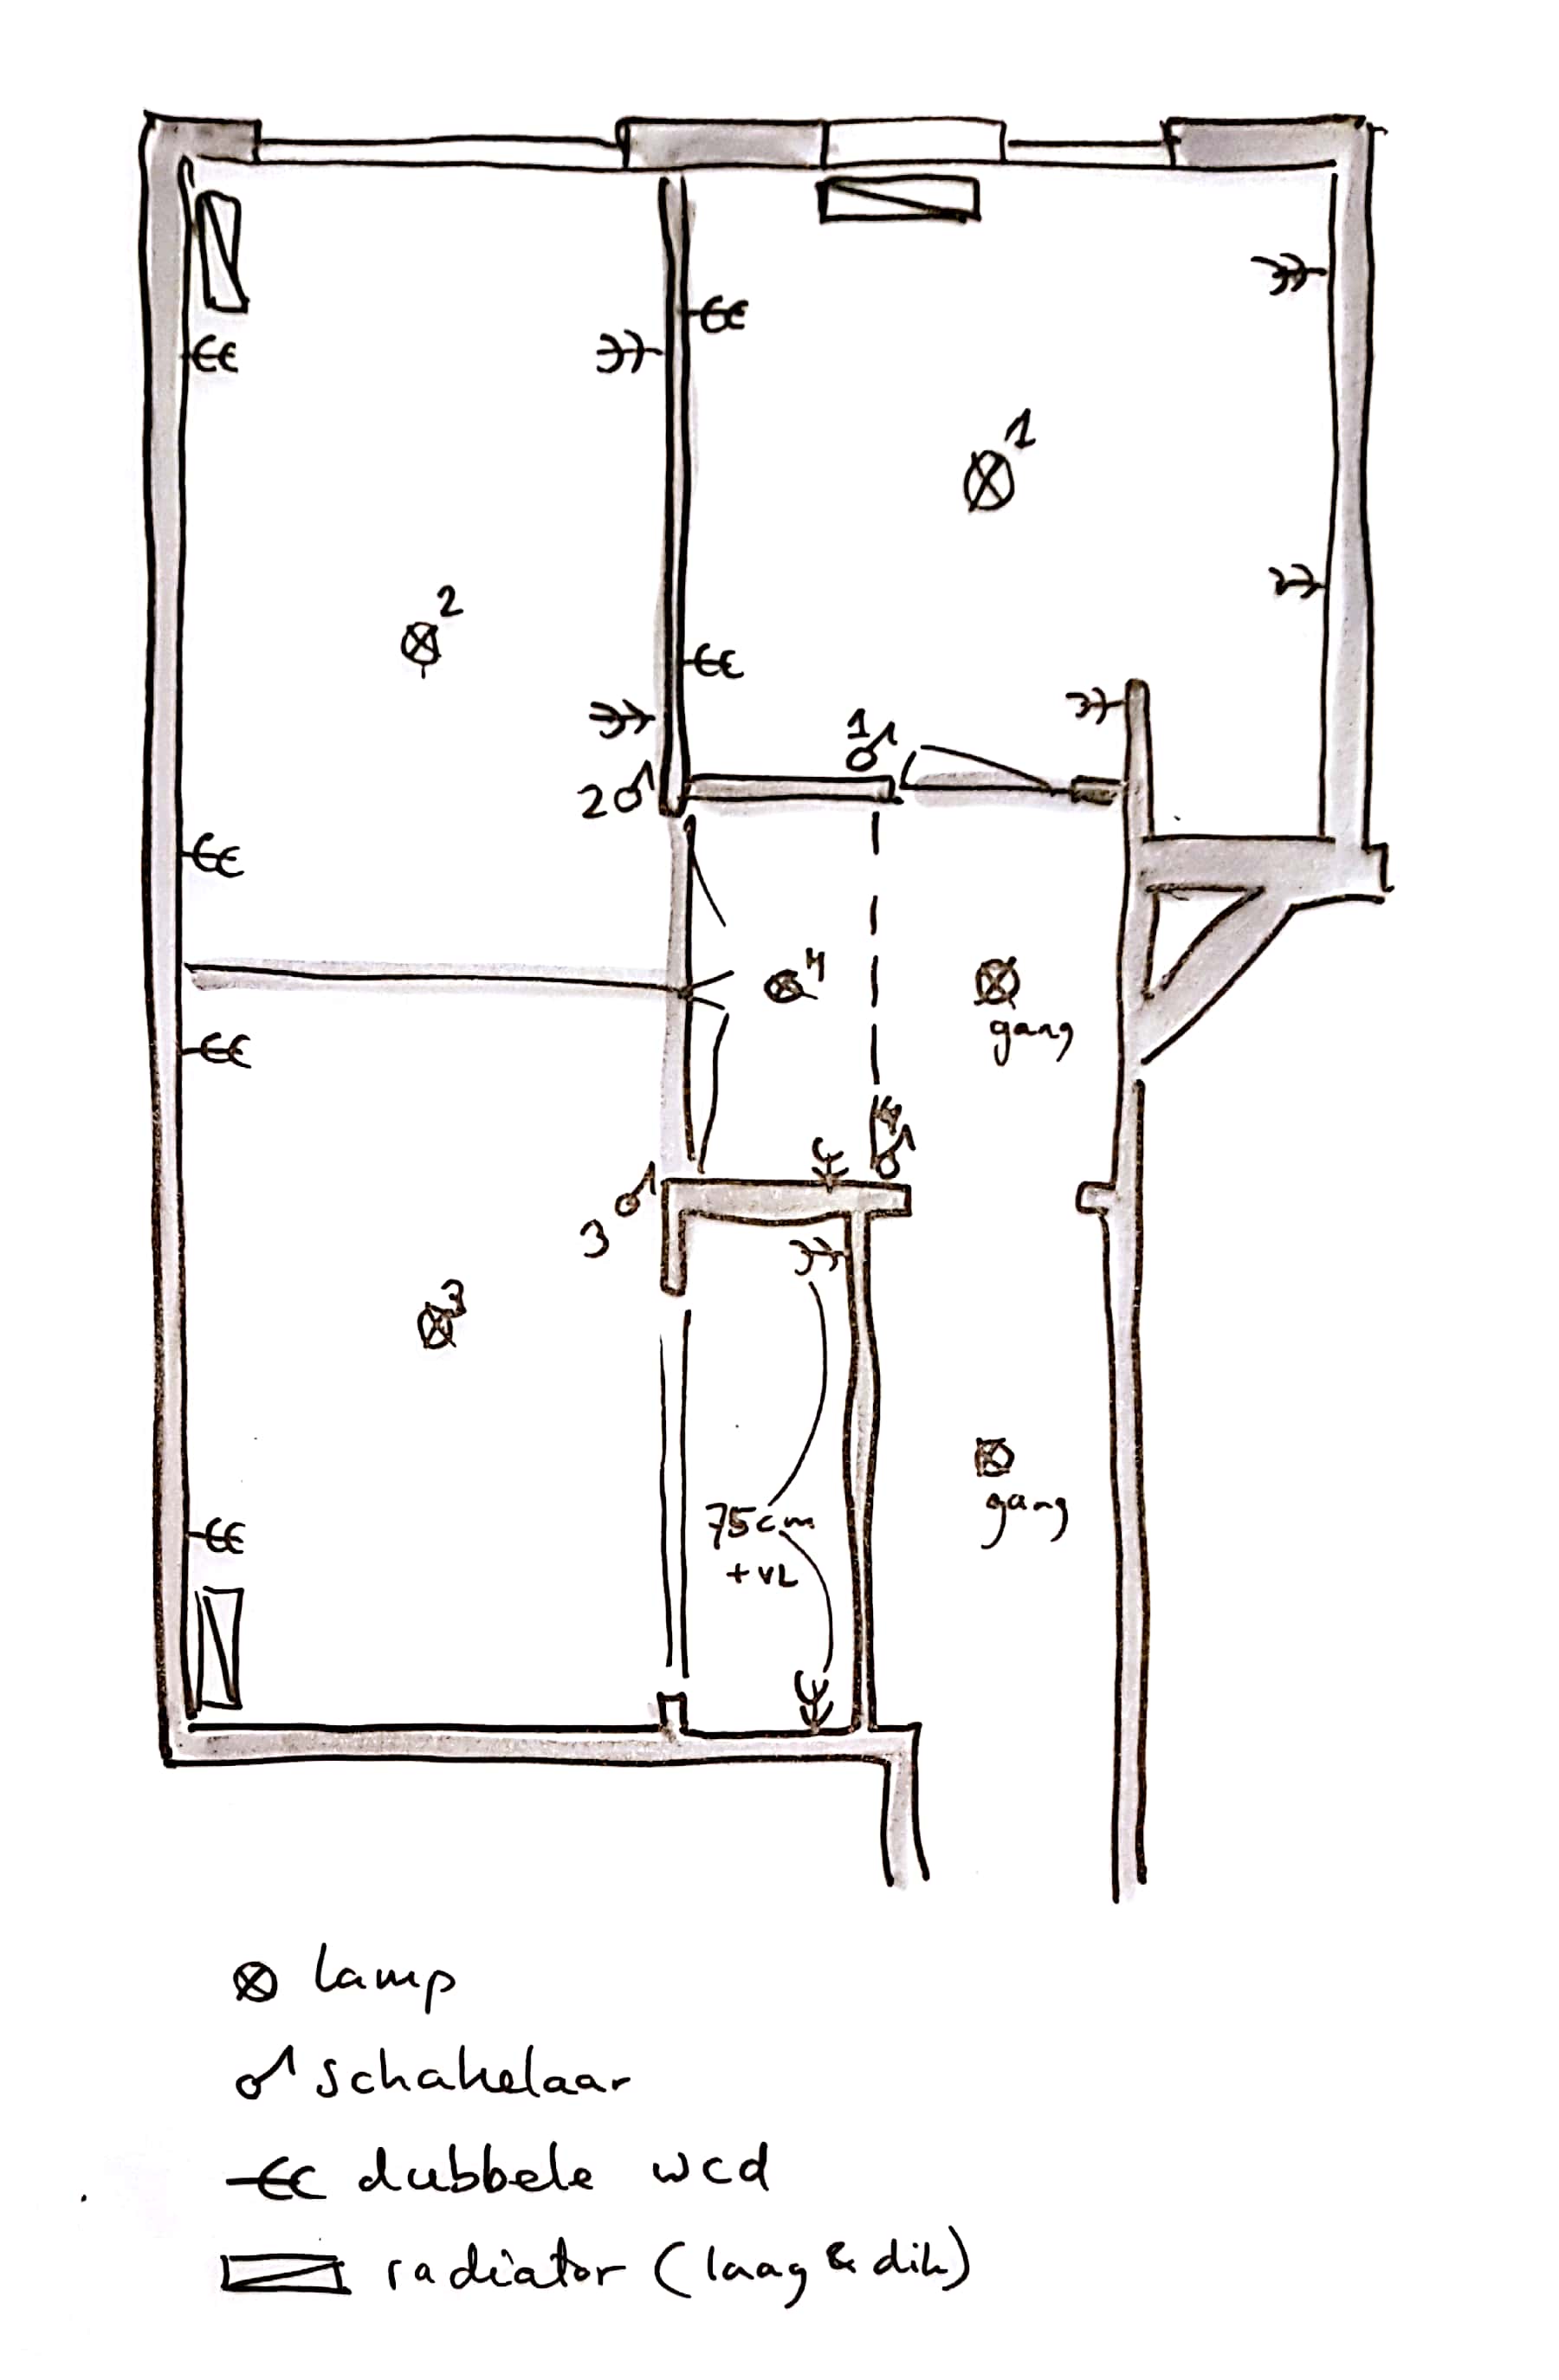 1
2
1
2
4
gang
4
3
3
gang
75cm
+ VL
lamp
schakelaar
dubbele wcd
radiator (laag & dik)